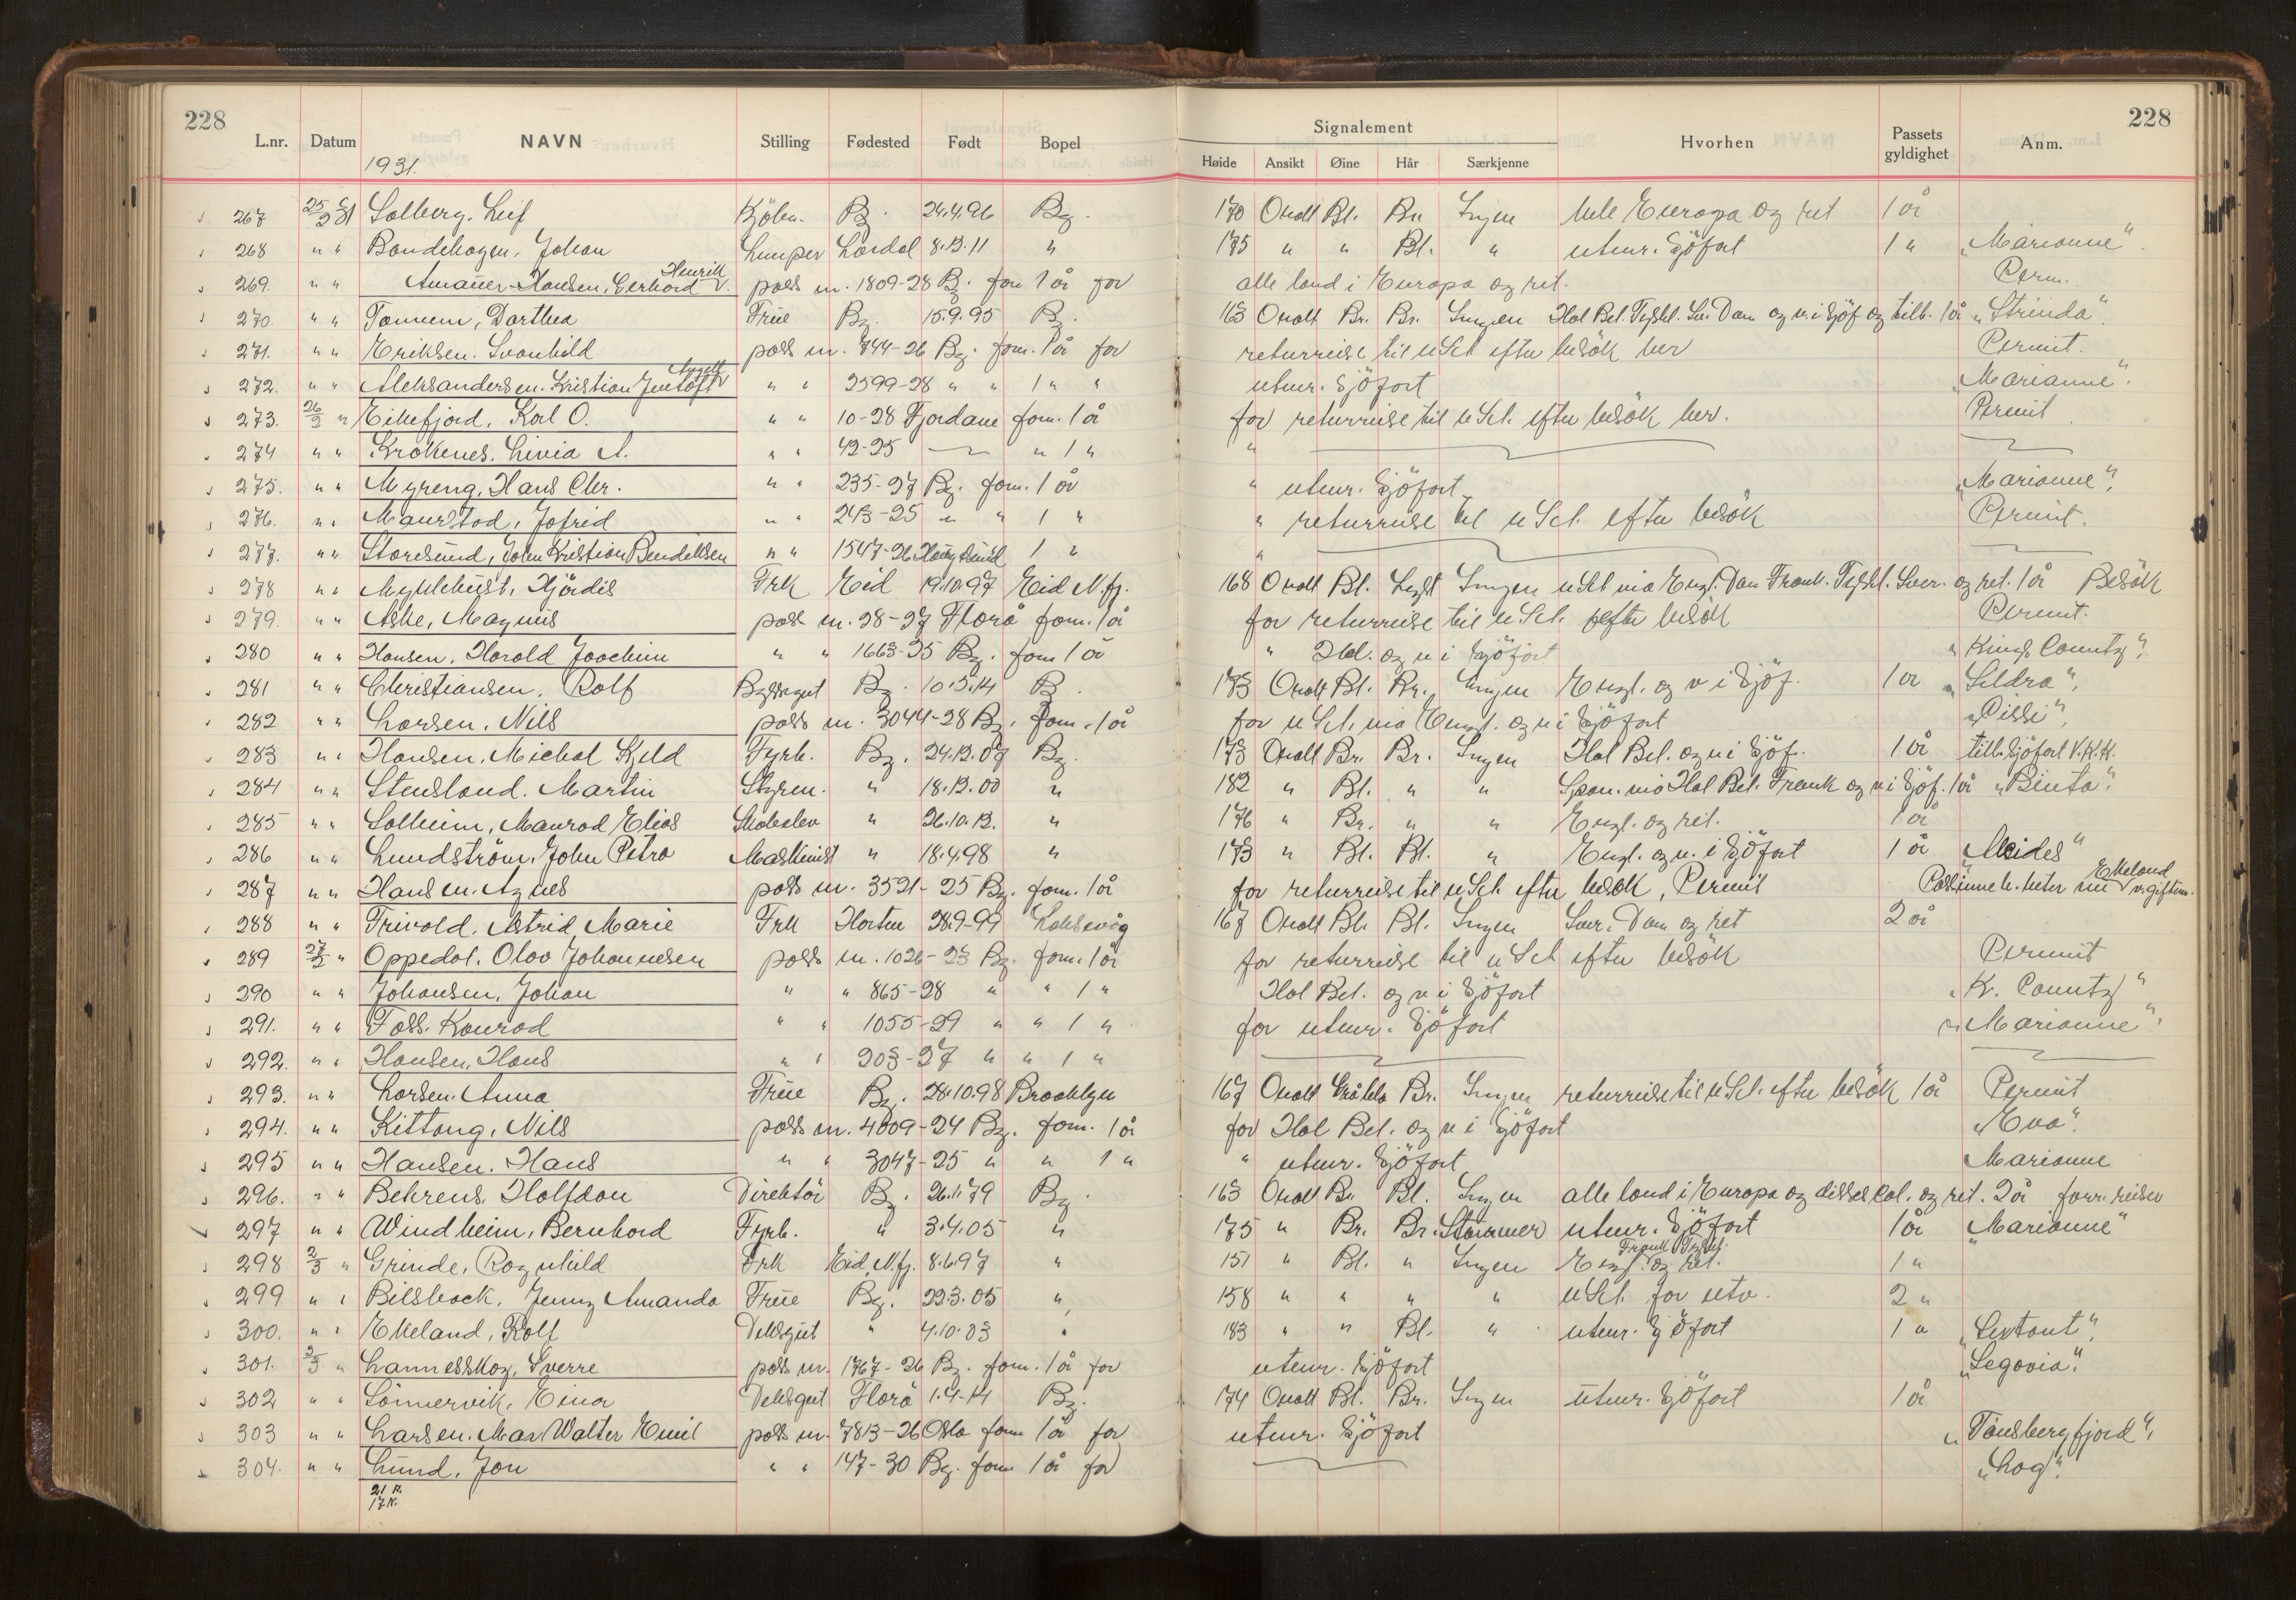 228 228
Signalement
L.nr. Datum NAVN Stilling Fødested Født Bopel Høide Ansikt Øine Hår Særkjenne Hvorhen Passets gyldighet Anm.
1931.
267 25/2 31 Solberg. Leif Kjöbm. Bg. 24.4.96 Bg. 170 Ovalt Bl. Br. Ingen hele Europa og ret 1 år
268 " " Bondehagen, Johan Lemper Lærdal 8.12.11 " 175 " " Bl. " utenr. Sjöfart 1 " „Marianne"
269. " " Amauer-Hansen, Gerhard Henrik pass nr. 1809-28 Bg. forn 1 år for alle land i Europa og ret. Perm.
270. " " Tannem, Dorthea Frue Bg. 15.9.95 Bg. 163 Ovalt Br. Br. Ingen Hol Bel. Tyskl. Sv. Dan og v. i Sjöf og tilb. 1 år „Strinda".
271. " " Eriksen. Svanhild pass nr. 744-26 Bg. forn. 1 år for returreise til u Sct. efter besök her Permit.
272. " " Aleksandersen. Kristian Jentoft " " 2599-28 " " 1 " " utenr. Sjöfart „Marianne".
273. 26/2 " Eikefjord, Karl O. " " 10-28 Fjordane forn. 1 år for returreise til u Sct. efter besök her. Permit
274 " " Krokenes. Livia A. " " 42-25 " 1 " "
275. " " Myreng, Hans Chr. " " 235-27 Bg. forn. 1 år " utenr. Sjöfart „Marianne".
276. " " Maurstad, Jofrid " " 243-25 " " 1 " " returreise til u Sct. efter besök Permit.
277. " " Storesund, John Kristian Bendiksen " " 1547-26 Haugesund 1 " "
278 " " Myklebust, Hjördis Frk Eid 19.10.97 Eid N.fj. 168 Ovalt Bl. Lyst Ingen u Sct via Engl. Dan Frank. Tyskl. Sver. og ret. 1 år Besök
279. " " Aske, Magnus pass nr. 28-27 Florö forn. 1 år for returreise til u Sct. efter besök Permit.
280 " " Hansen, Harald Joachim " " 1663-25 Bg. forn 1 år " Hol. og v i Sjöfart „Kings County".
281 " " Christiansen. Rolf Byssegut Bg. 10.5.14 B. 173 Ovalt Bl. Br. Ingen Engl. og v i Sjöf. 1 år „Sildra".
282 " " Larsen. Nils pass nr. 3044-28 Bg. forn. 1 år for u Sct. via Engl. og v i Sjöfart „Cissi".
283 " " Hansen, Michal Kjeld Fyrb. Bg. 24.12.07 Bg. 173 Ovalt Br. Br. Ingen Hol Bel. og v i Sjöf. 1 år tilb. Sjöfart V.K.K.
284 " " Stensland. Martin Styrm. " 18.12.00 " 182 " Bl. " " Span. via Hol Bel. Frank og v i Sjöf. 1 år „Binta".
285 " " Solheim, Manrad Elias Skoleelev " 26.10.12. " 176 " Br. " " Engl. og ret. 1 år
286 " " Lundström, John Petra Maskinist " 18.4.98 " 173 " Bl. Bl. " Engl. og v. i Sjöfart 1 år „Alcides"
287 " " Hansen. Agnes pass nr. 3521-25 Bg. forn. 1 år for returreise til u Sct. efter besök, Permit Passinneh. heter nu Ekeland v. giftem.
288 " " Trivold. Astrid Marie Frk Horten 28.9-99 Laksevåg 167 Ovalt Bl. Bl. Ingen Sver. Dan og ret 2 år
289 27/2 " Oppedal. Olav Johannesen pass nr. 1026-23 Bg. forn. 1 år for returreise til u Sct efter besök Permit
290 " " Johansen, Johan " " 865-28 " " 1 " Hol Bel. og v i Sjöfart „K. County"
291. " " Foss. Konrad " " 1055-29 " " 1 " for utenr. Sjöfart „Marianne".
292. " " Hansen. Hans " " 203-27 " " 1 "
293. " " Larsen. Anna Frue Bg. 28.10.98 Brooklyn 167 Ovalt Gråblå Br. Ingen returreise til u Sct. efter besök 1 år Permit
294. " " Kittang, Nils pass nr. 4009-24 Bg. forn. 1 år for Hol Bel. og v i Sjöfart „Eva".
295 " " Hansen. Hans " " 3047-25 " " 1 " " utenr. Sjöfart Marianne
296. " " Behrens. Halfdan Direktör Bg. 26.11.79 Bg. 163 Ovalt Br. Bl. Ingen alle land i Europa og disses Col. og ret. 2 år forr. reiser
297 " " Windheim, Bernhard Fyrb. " 3.4.05 " 175 " Br. Br. Stammer utenr. Sjöfart 1 år „Marianne"
298 2/3 " Grinde, Ragnhild Frk Eid, N.fj. 8.6.97 " 151 " Bl. " Ingen Engl. Frank Tyskl. og ret. 1 "
299 " " Bilsback, Jenny Amanda Frue Bg. 22.3.05 " 158 " " " " u Sct. for utv. 2 "
300. " " Ekeland, Rolf Dekksgut " 4.10.03 " 183 " " Bl. " utenr. Sjöfart 1 " „Sextant".
301. 2/3 " Lannesskog, Sverre pass nr. 1767-26 Bg. forn. 1 år for utenr. Sjöfart „Segovia".
302 " " Sönnervik, Einar Dekksgut Florö 1.4-14 Bg. 174 Ovalt Bl. Br. Ingen utenr. Sjöfart 1 år
303 " " Larsen. Max Walter Emil pass nr. 7813-26 Oslo forn 1 år for utenr. Sjöfart „Tönsbergfjord".
304. " " Lund, Jon " " 147-30 Bg. forn 1 år for „Log".
21 K.
17 K.